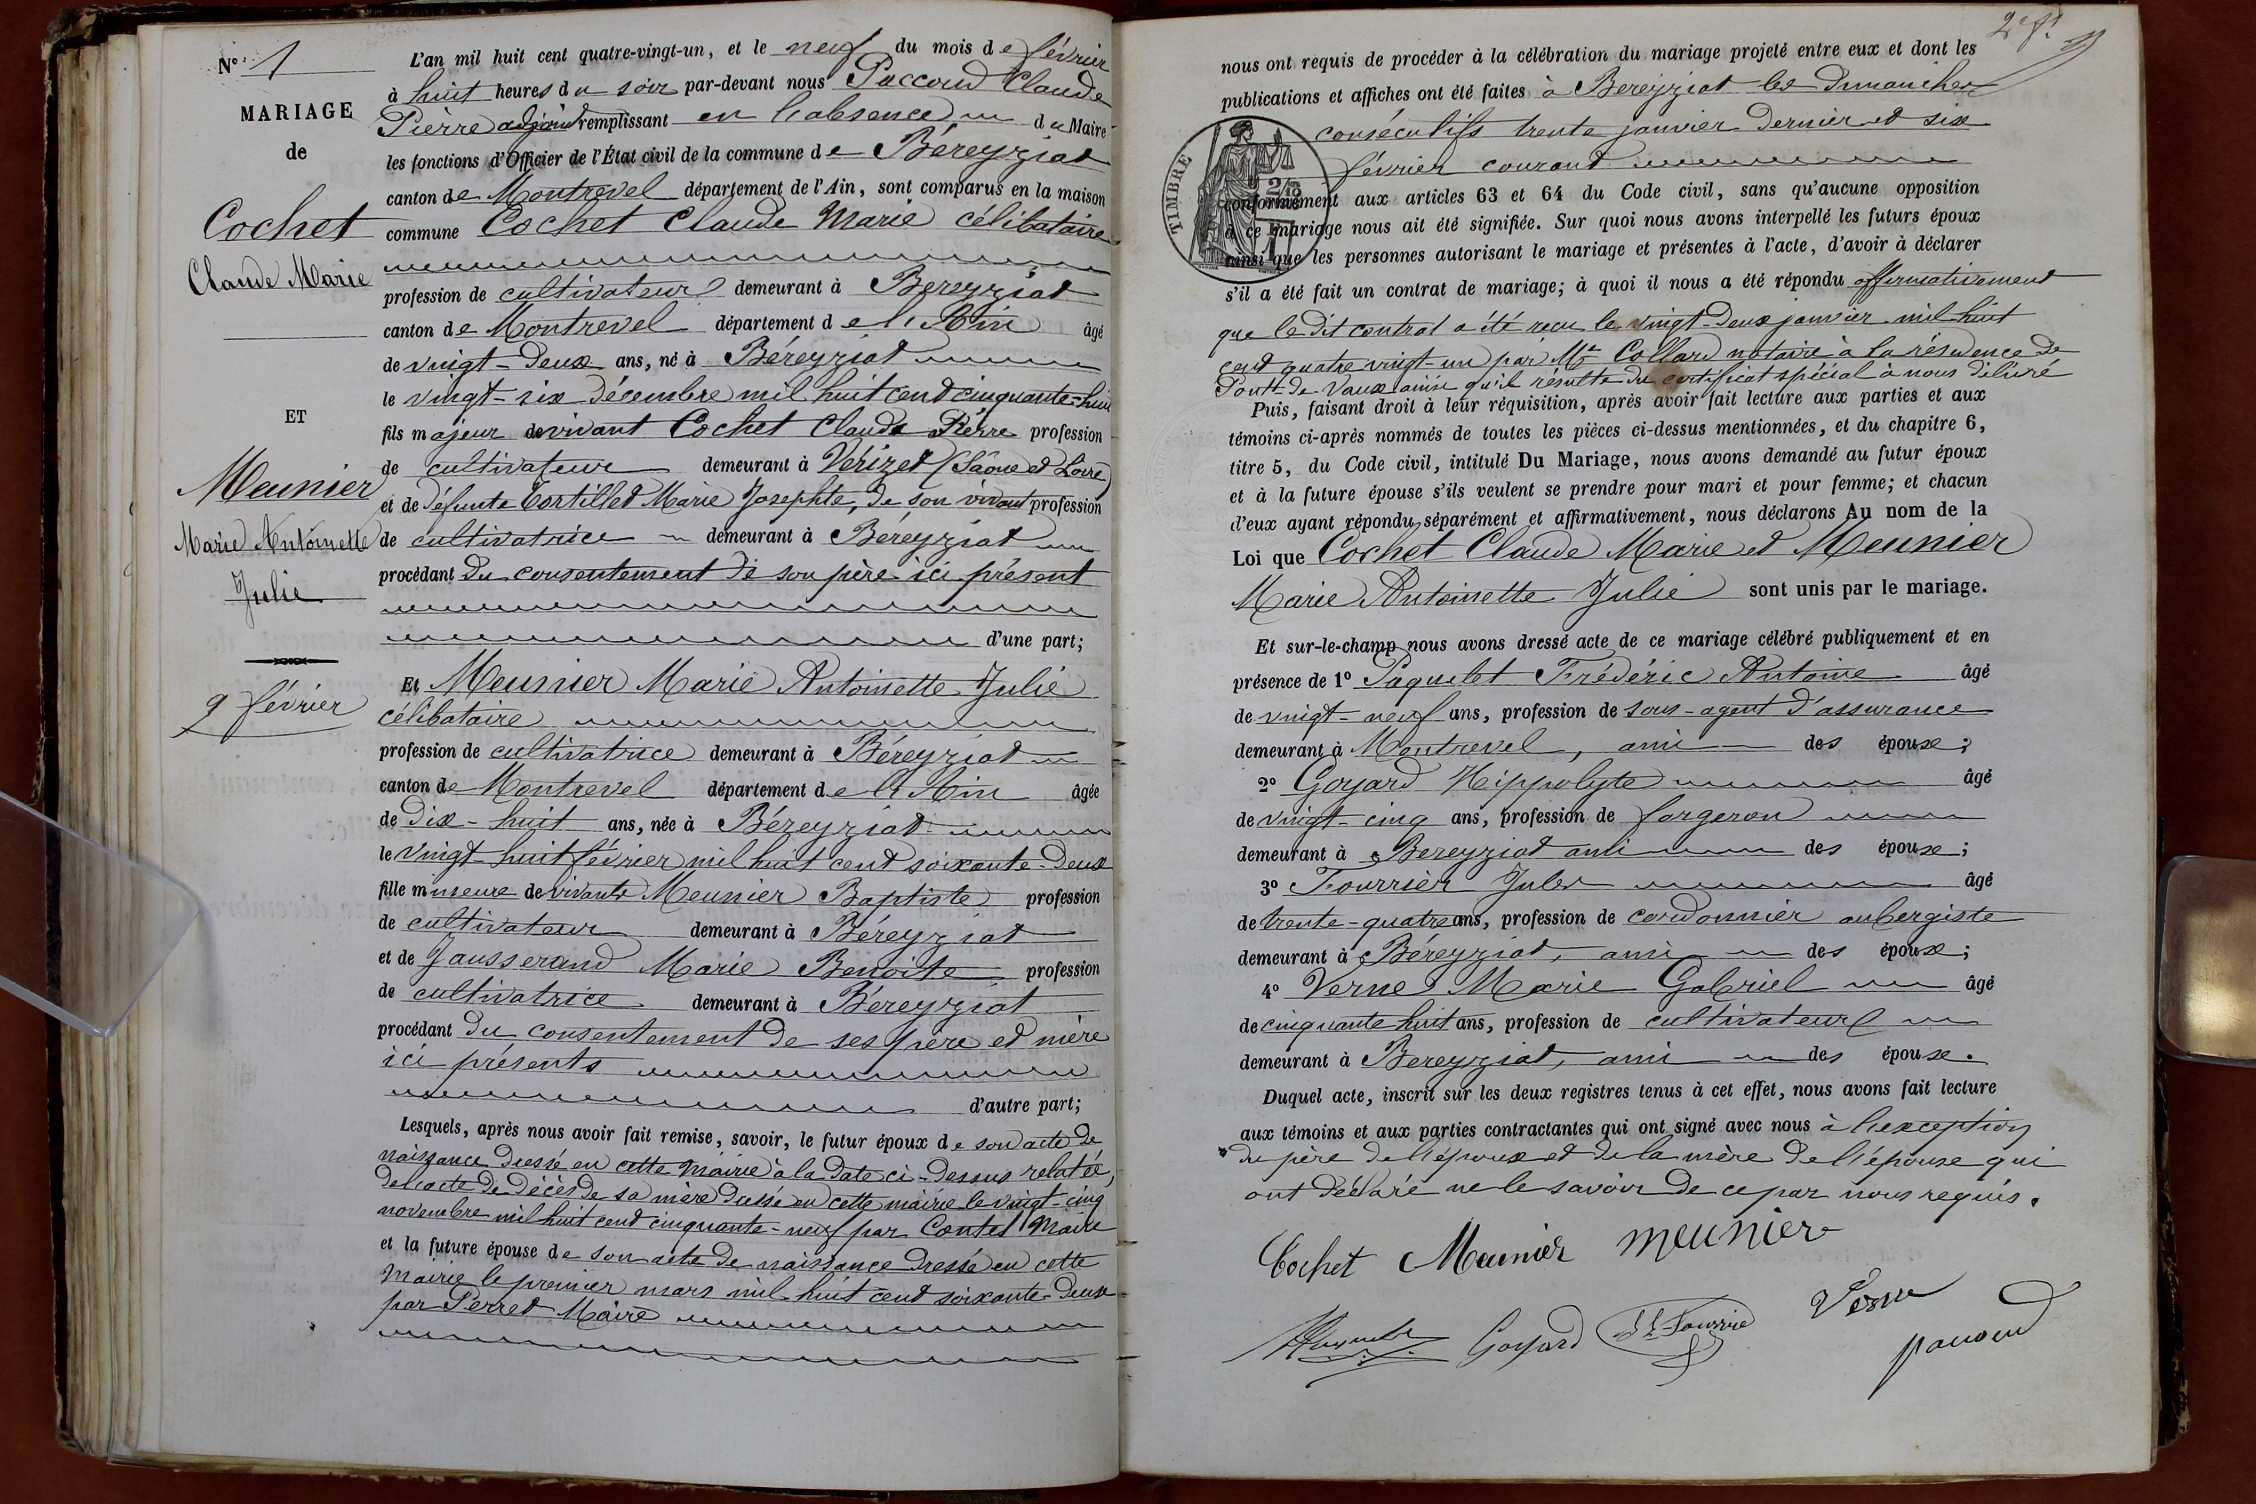 N° 1
MARIAGE
de
Cochet
Claude Marie
ET
Meunier
Marie Antoinette
Julie
9 février
L'an mil huit cent quatre-vingt-un, et le neuf du mois de février
à huit heures du soir par-devant nous Paccoud Claude
Pierre adjoint remplissant en l'absence du Maire
les fonctions d'Officier de l'État civil de la commune de Béreyziat
canton de Montrevel département de l'Ain, sont comparus en la maison
commune Cochet Claude Marie célibataire
profession de cultivateur demeurant à Bereyziat
canton de Montrevel département de l'Ain âgé
de vingt-deux ans, né à Béreyziat
le vingt-six décembre mil huit cent cinquante-huit
fils majeur de vivant Cochet Claude Pierre profession
de cultivateur demeurant à Vérizet (Saône et Loire)
et de défunte Tortillet Marie Josephte, de son vivant profession
de cultivatrice demeurant à Béreyziat
procédant du consentement de son père ici présent
d'une part;
Et Meunier Marie Antoinette Julie
célibataire
profession de cultivatrice demeurant à Béreyziat
canton de Montrevel département de l'Ain âgée
de dix-huit ans, née à Béreyziat
le vingt-huit février mil huit cent soixante-deux
fille mineure de vivants Meunier Baptiste profession
de cultivateur demeurant à Béreyziat
et de Jausserand Marie Benoite profession
de cultivatrice demeurant à Béreyziat
procédant du consentement de ses père et mère
ici présents
d'autre part;
Lesquels, après nous avoir fait remise, savoir, le futur époux de son acte de
naissance dressé en cette mairie à la date ci-dessus relatée,
de l'acte de décès de sa mère dressé en cette mairie le vingt-cinq
novembre mil huit cent cinquante-neuf par Contet Maire
et la future épouse de son acte de naissance dressé en cette
Mairie le premier mars mil huit cent soixante-deux
par Perret Maire
2e ft
nous ont requis de procéder à la célébration du mariage projeté entre eux et dont les
publications et affiches ont été faites à Bereyziat les dimanches
consécutifs trente janvier dernier et six
février courant
TIMBRE
conformément aux articles 63 et 64 du Code civil, sans qu'aucune opposition
à ce mariage nous ait été signifiée. Sur quoi nous avons interpellé les futurs époux
ainsi que les personnes autorisant le mariage et présentes à l'acte, d'avoir à déclarer
s'il a été fait un contrat de mariage; à quoi il nous a été répondu affirmativement
que le dit contrat a été reçu le vingt-deux janvier mil huit
cent quatre vingt-un par Me Collard notaire à la résidence de
Pont-de-Vaux ainsi qu'il résulte du certificat spécial à nous délivré
Puis, faisant droit à leur réquisition, après avoir fait lecture aux parties et aux
témoins ci-après nommés de toutes les pièces ci-dessus mentionnées, et du chapitre 6,
titre 5, du Code civil, intitulé Du Mariage, nous avons demandé au futur époux
et à la future épouse s'ils veulent se prendre pour mari et pour femme; et chacun
d'eux ayant répondu séparément et affirmativement, nous déclarons Au nom de la
Loi que Cochet Claude Marie et Meunier
Marie Antoinette Julie sont unis par le mariage.
Et sur-le-champ nous avons dressé acte de ce mariage célébré publiquement et en
présence de 1° Paquelet Frédéric Antoine âgé
de vingt-neuf ans, profession de sous-agent d'assurance
demeurant à Montrevel, ami des époux;
2° Goyard Hippolyte âgé
de vingt-cinq ans, profession de forgeron
demeurant à Bereyziat ami des époux;
3° Fourrier Jules âgé
de trente-quatre ans, profession de cordonnier aubergiste
demeurant à Béreyziat, ami des époux;
4° Verne Marie Gabriel âgé
de cinquante huit ans, profession de cultivateur
demeurant à Bereyziat, ami des époux.
Duquel acte, inscrit sur les deux registres tenus à cet effet, nous avons fait lecture
aux témoins et aux parties contractantes qui ont signé avec nous à l'exception
du père de l'époux et de la mère de l'épouse qui
ont déclaré ne le savoir de ce par nous requis.
Cochet Meunier meunier
Verne
Goyard Jl Fourrier
paccoud